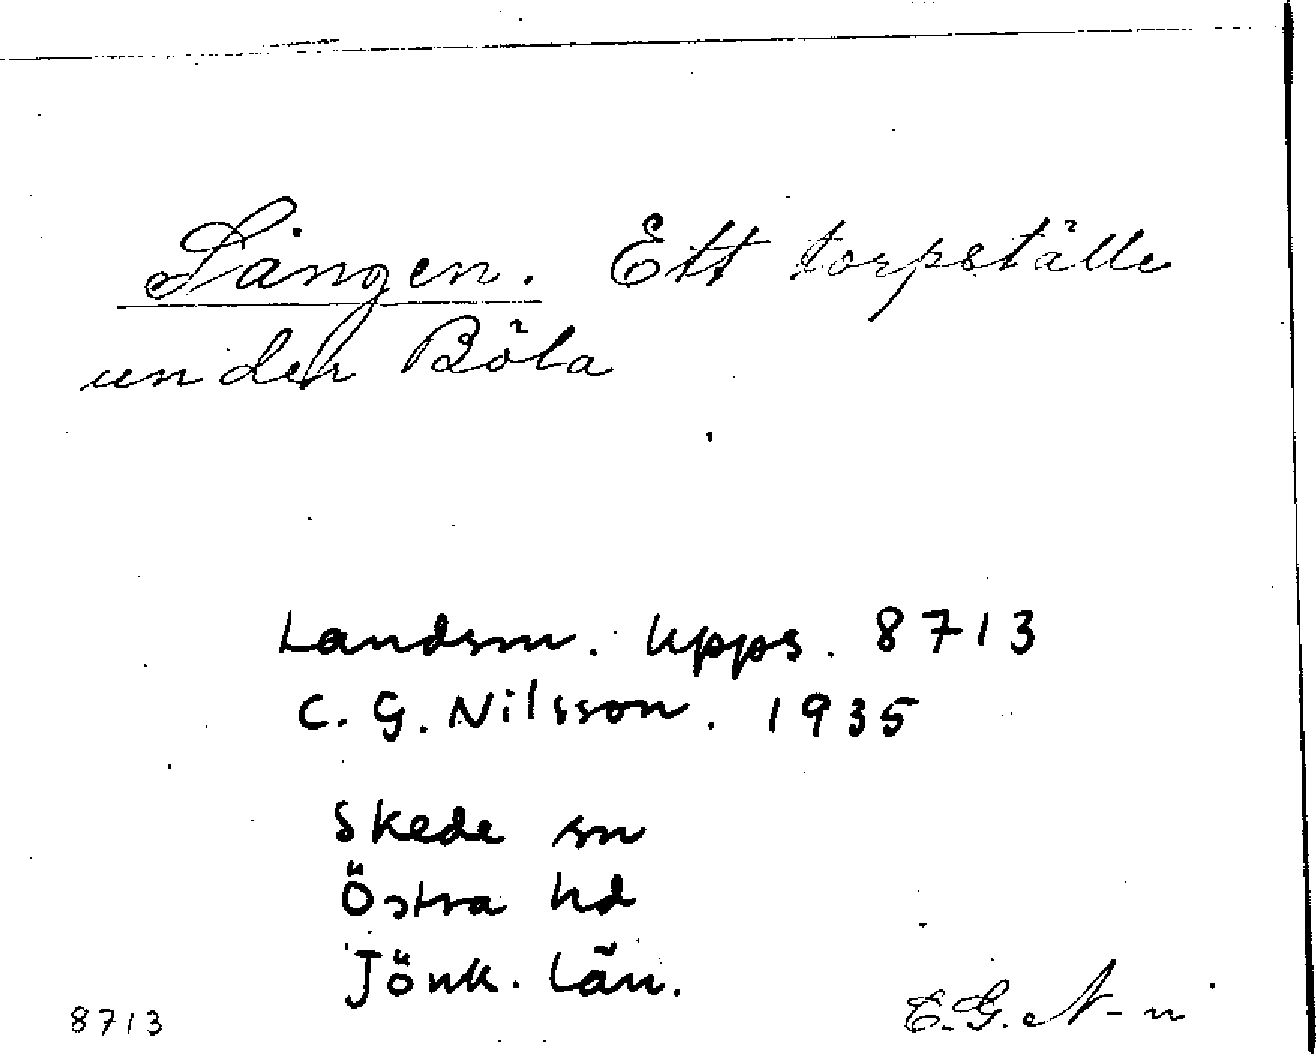 Längen. Ett torpställe
under Böla
Landsm. Upps. 8713
C. G. Nilsson. 1935
Skede sn
Östra hd
Jönk. län.
8713
C. G. N-n